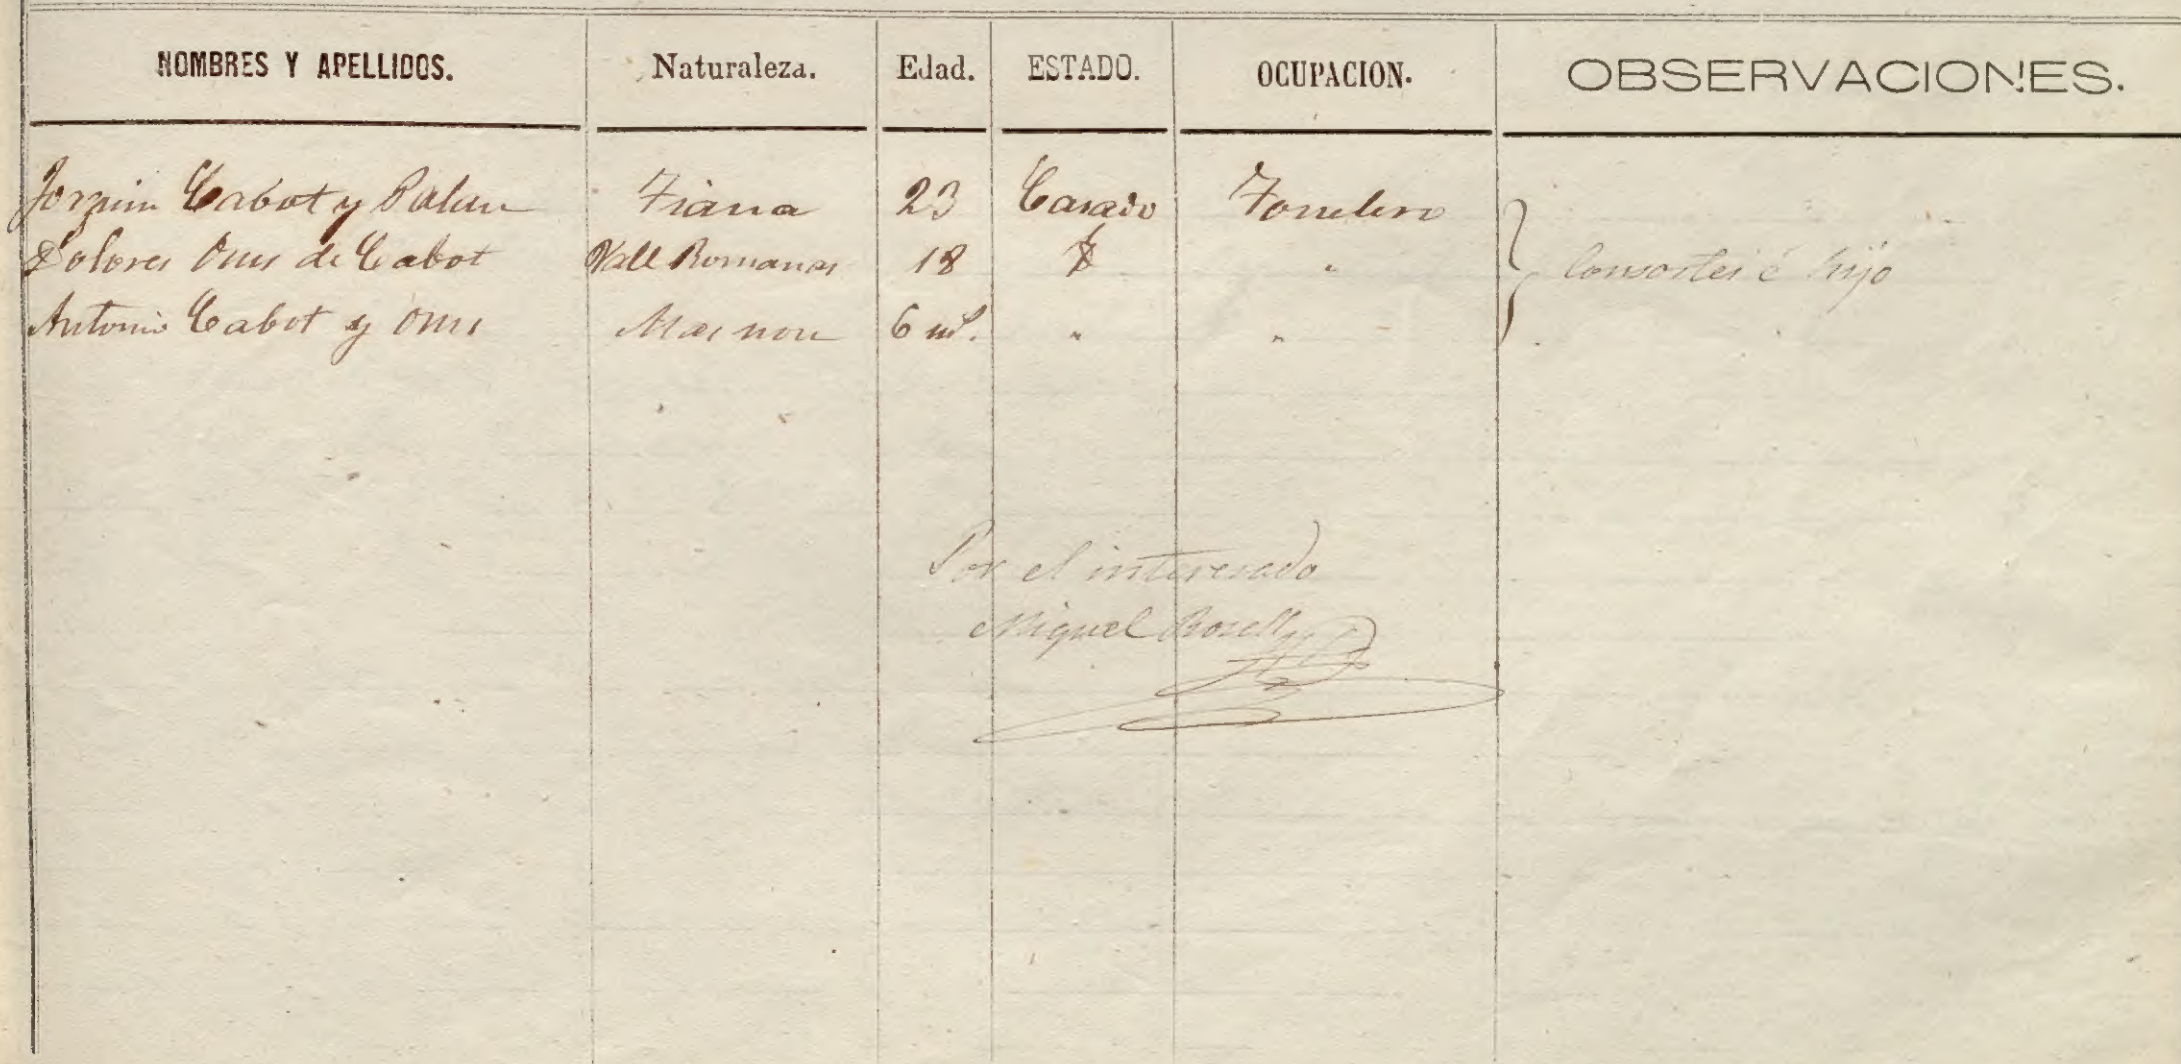 NOMBRES Y APELLIDOS. Naturaleza. Edad. ESTADO. OCUPACION. OBSERVACIONES.
Joaquin Cabot y Palau Tiana 23 Casado Tonelero
Dolores Oms de Cabot Vall Romanas 18 " Consortes é hijo
Antonio Cabot y Oms Masnou 6 ms. " "
Por el interesado
Miguel Rosell